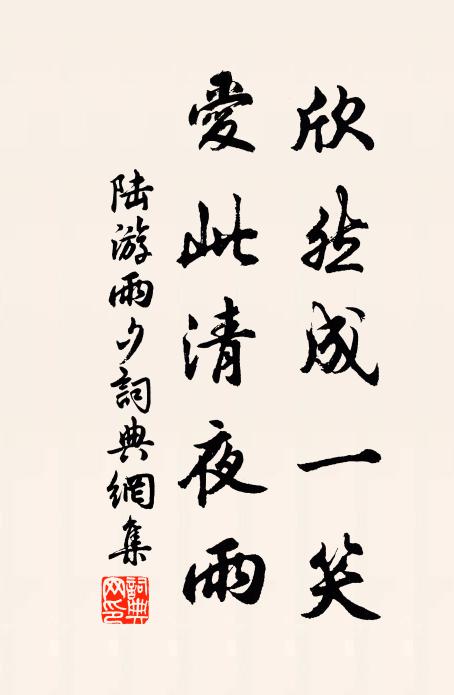 欣然成一笑
愛此清夜雨
陆游雨夕詞典網集
詞典网印